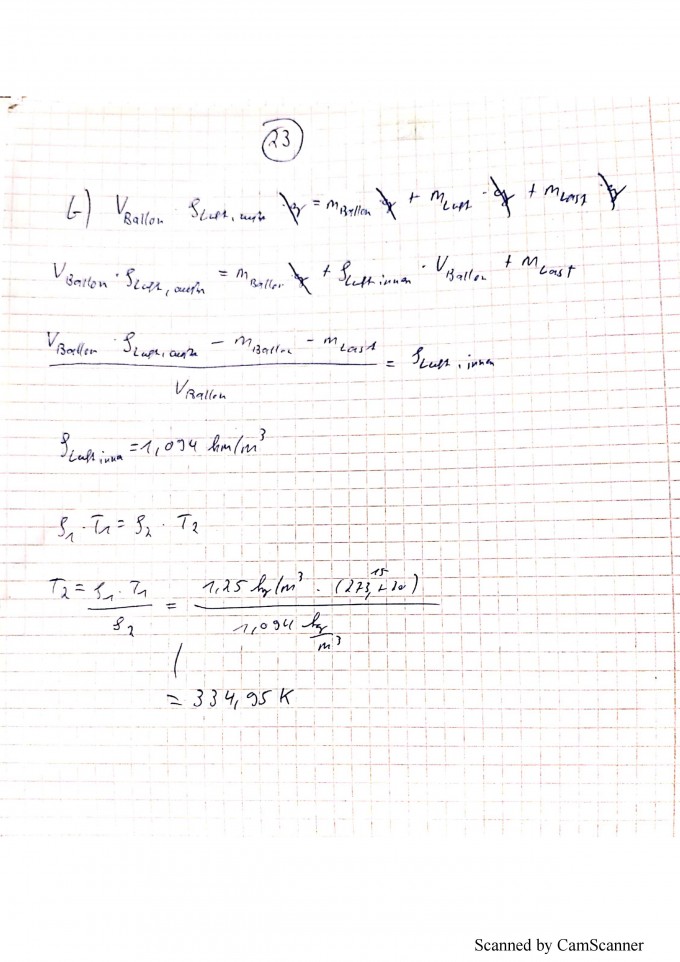 23
b) V_Ballon · ρ_Luft, außen · g = m_Ballon · g + m_Luft · g + m_Last · g
V_Ballon · ρ_Luft, außen = m_Ballon g + ρ_Luft innen · V_Ballon + m_Last
V_Ballon · ρ_Luft, außen - m_Ballon - m_Last = ρ_Luft, innen
V_Ballon
ρ_Luft innen = 1,094 km/m³
ρ₁ · T₁ = ρ₂ · T₂
T₂ = ρ₁ · T₁ / ρ₂ = 1,25 kg/m³ · (273,15 + 20) / 1,094 kg/m³
= 334,95 K
Scanned by CamScanner